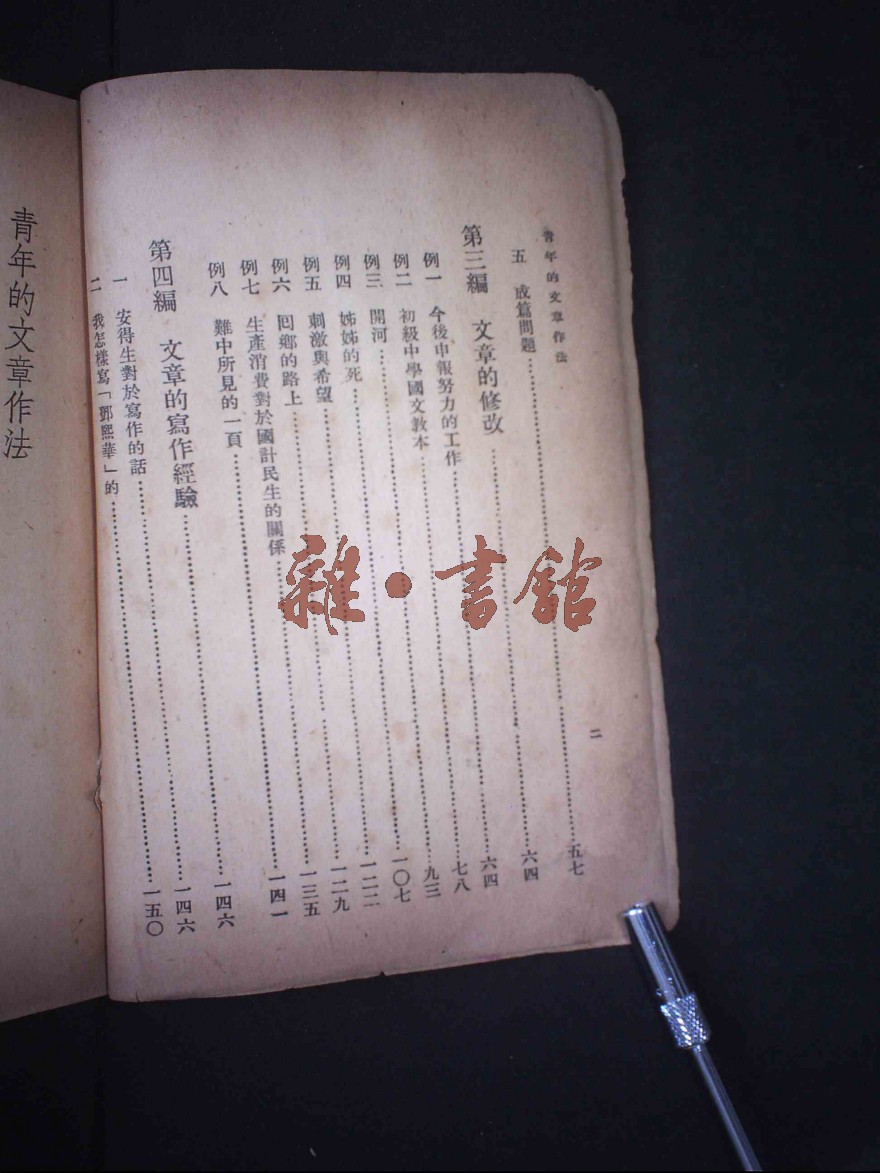 青年的文章作法 二
五 成篇問題……五七
第三編 文章的修改……六四
例一 今後申報努力的工作……六四
例二 初級中學國文教本……七八
例三 開河……九三
例四 姊姊的死……一〇七
例五 刺激與希望……一二二
例六 囘鄉的路上……一二九
例七 生產消費對於國計民生的關係……一三五
例八 難中所見的一頁……一四一
第四編 文章的寫作經驗……一四六
一 安得生對於寫作的話……一四六
二 我怎樣寫「鄧熙華」的……一五〇
青年的文章作法
雜·書館